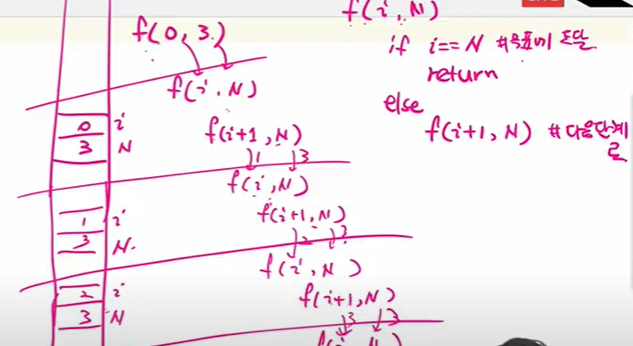 f(0, 3)
f(i, N)
0 i
3 N
f(i+1, N)
1 3
f(i, N)
1 i
3 N
f(i+1, N)
2 3
f(i, N)
2 i
3 N
f(i+1, N)
3 3
f(i, N)
if i == N #목표에 도달
return
else
f(i+1, N) #다음단계
로